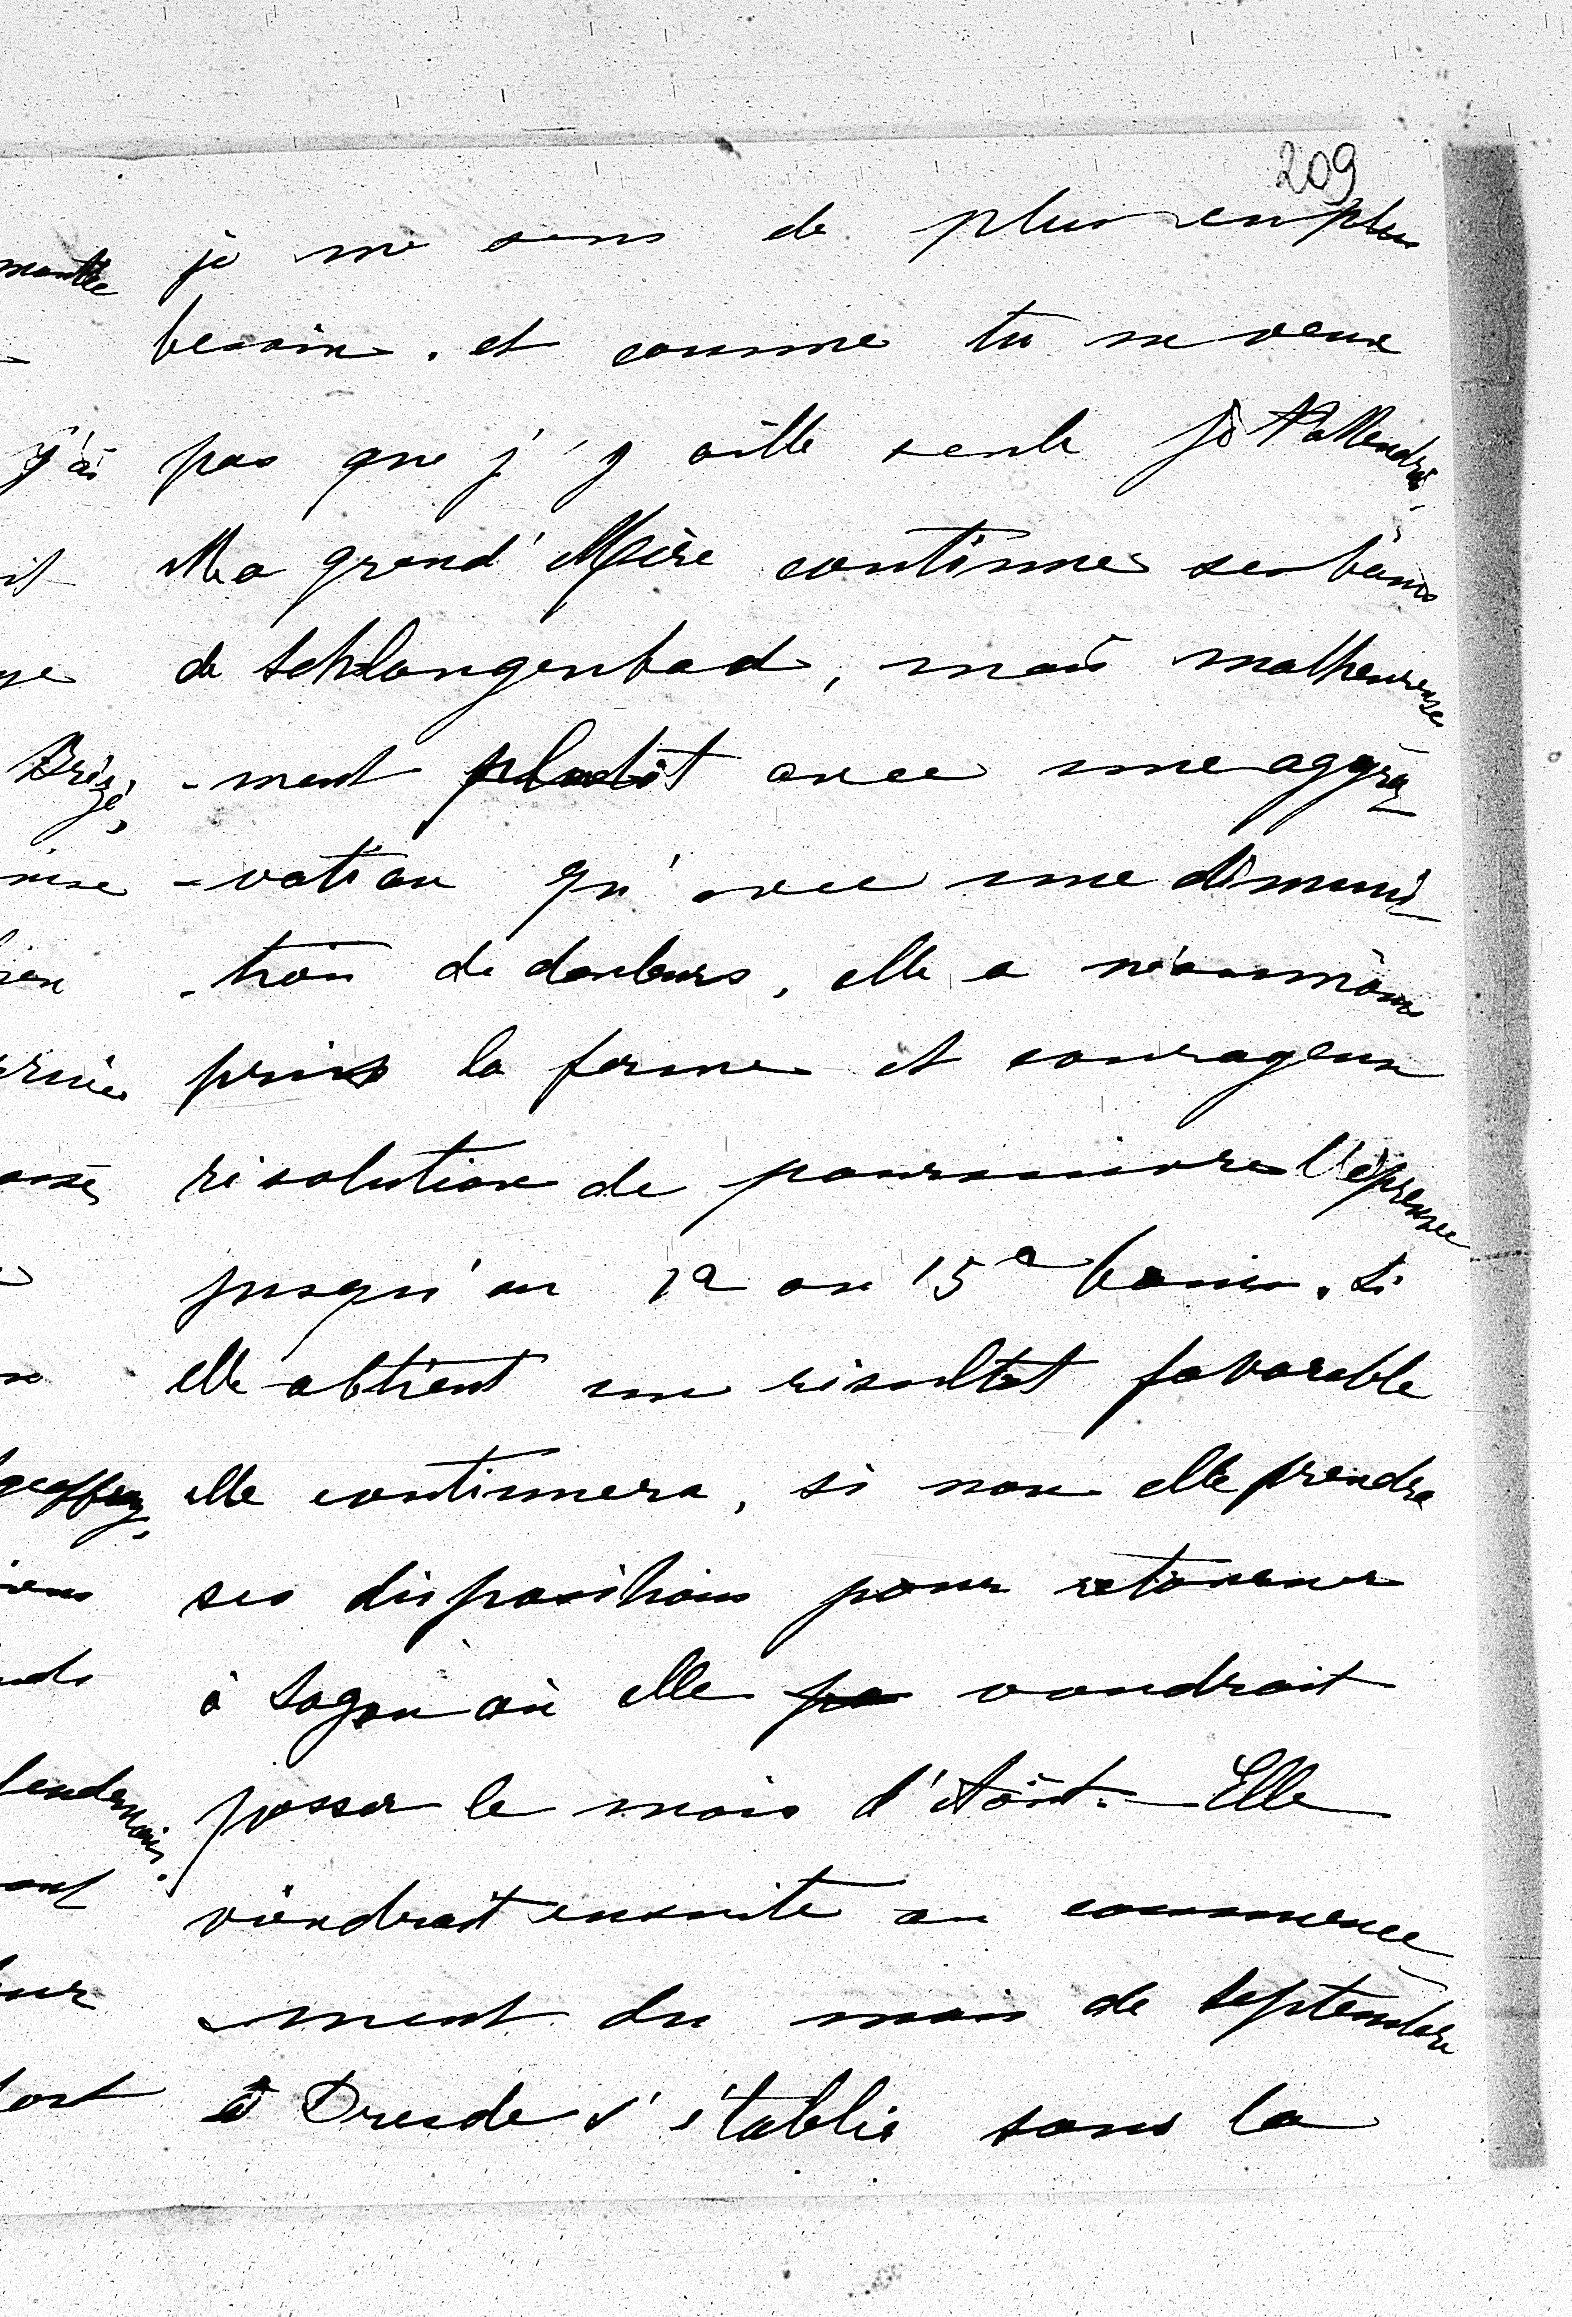 209
je me sens de plus en plus
besoin. et comme tu ne veux
pas que j'y aille seule je t'attendrai.
Ma grand' Mère continue ses bains
de Schlangenbad, mais malheureuse
-ment plutôt avec une aggra
-vation qu'avec une diminu
-tion de douleurs, elle a néanmoins
pris la ferme et courageuse
résolution de poursuivre l'épreuve
jusqu'au 12 ou 15e bain. Si
elle obtient un résultat favorable
elle continuera, si non elle prendra
ses dispositions pour retourner
à Sagan où elle voudrait
passer le mois d'Août. Elle
viendrait ensuite au commence
-ment du mois de Septembre
à Dresde s'établir sous la